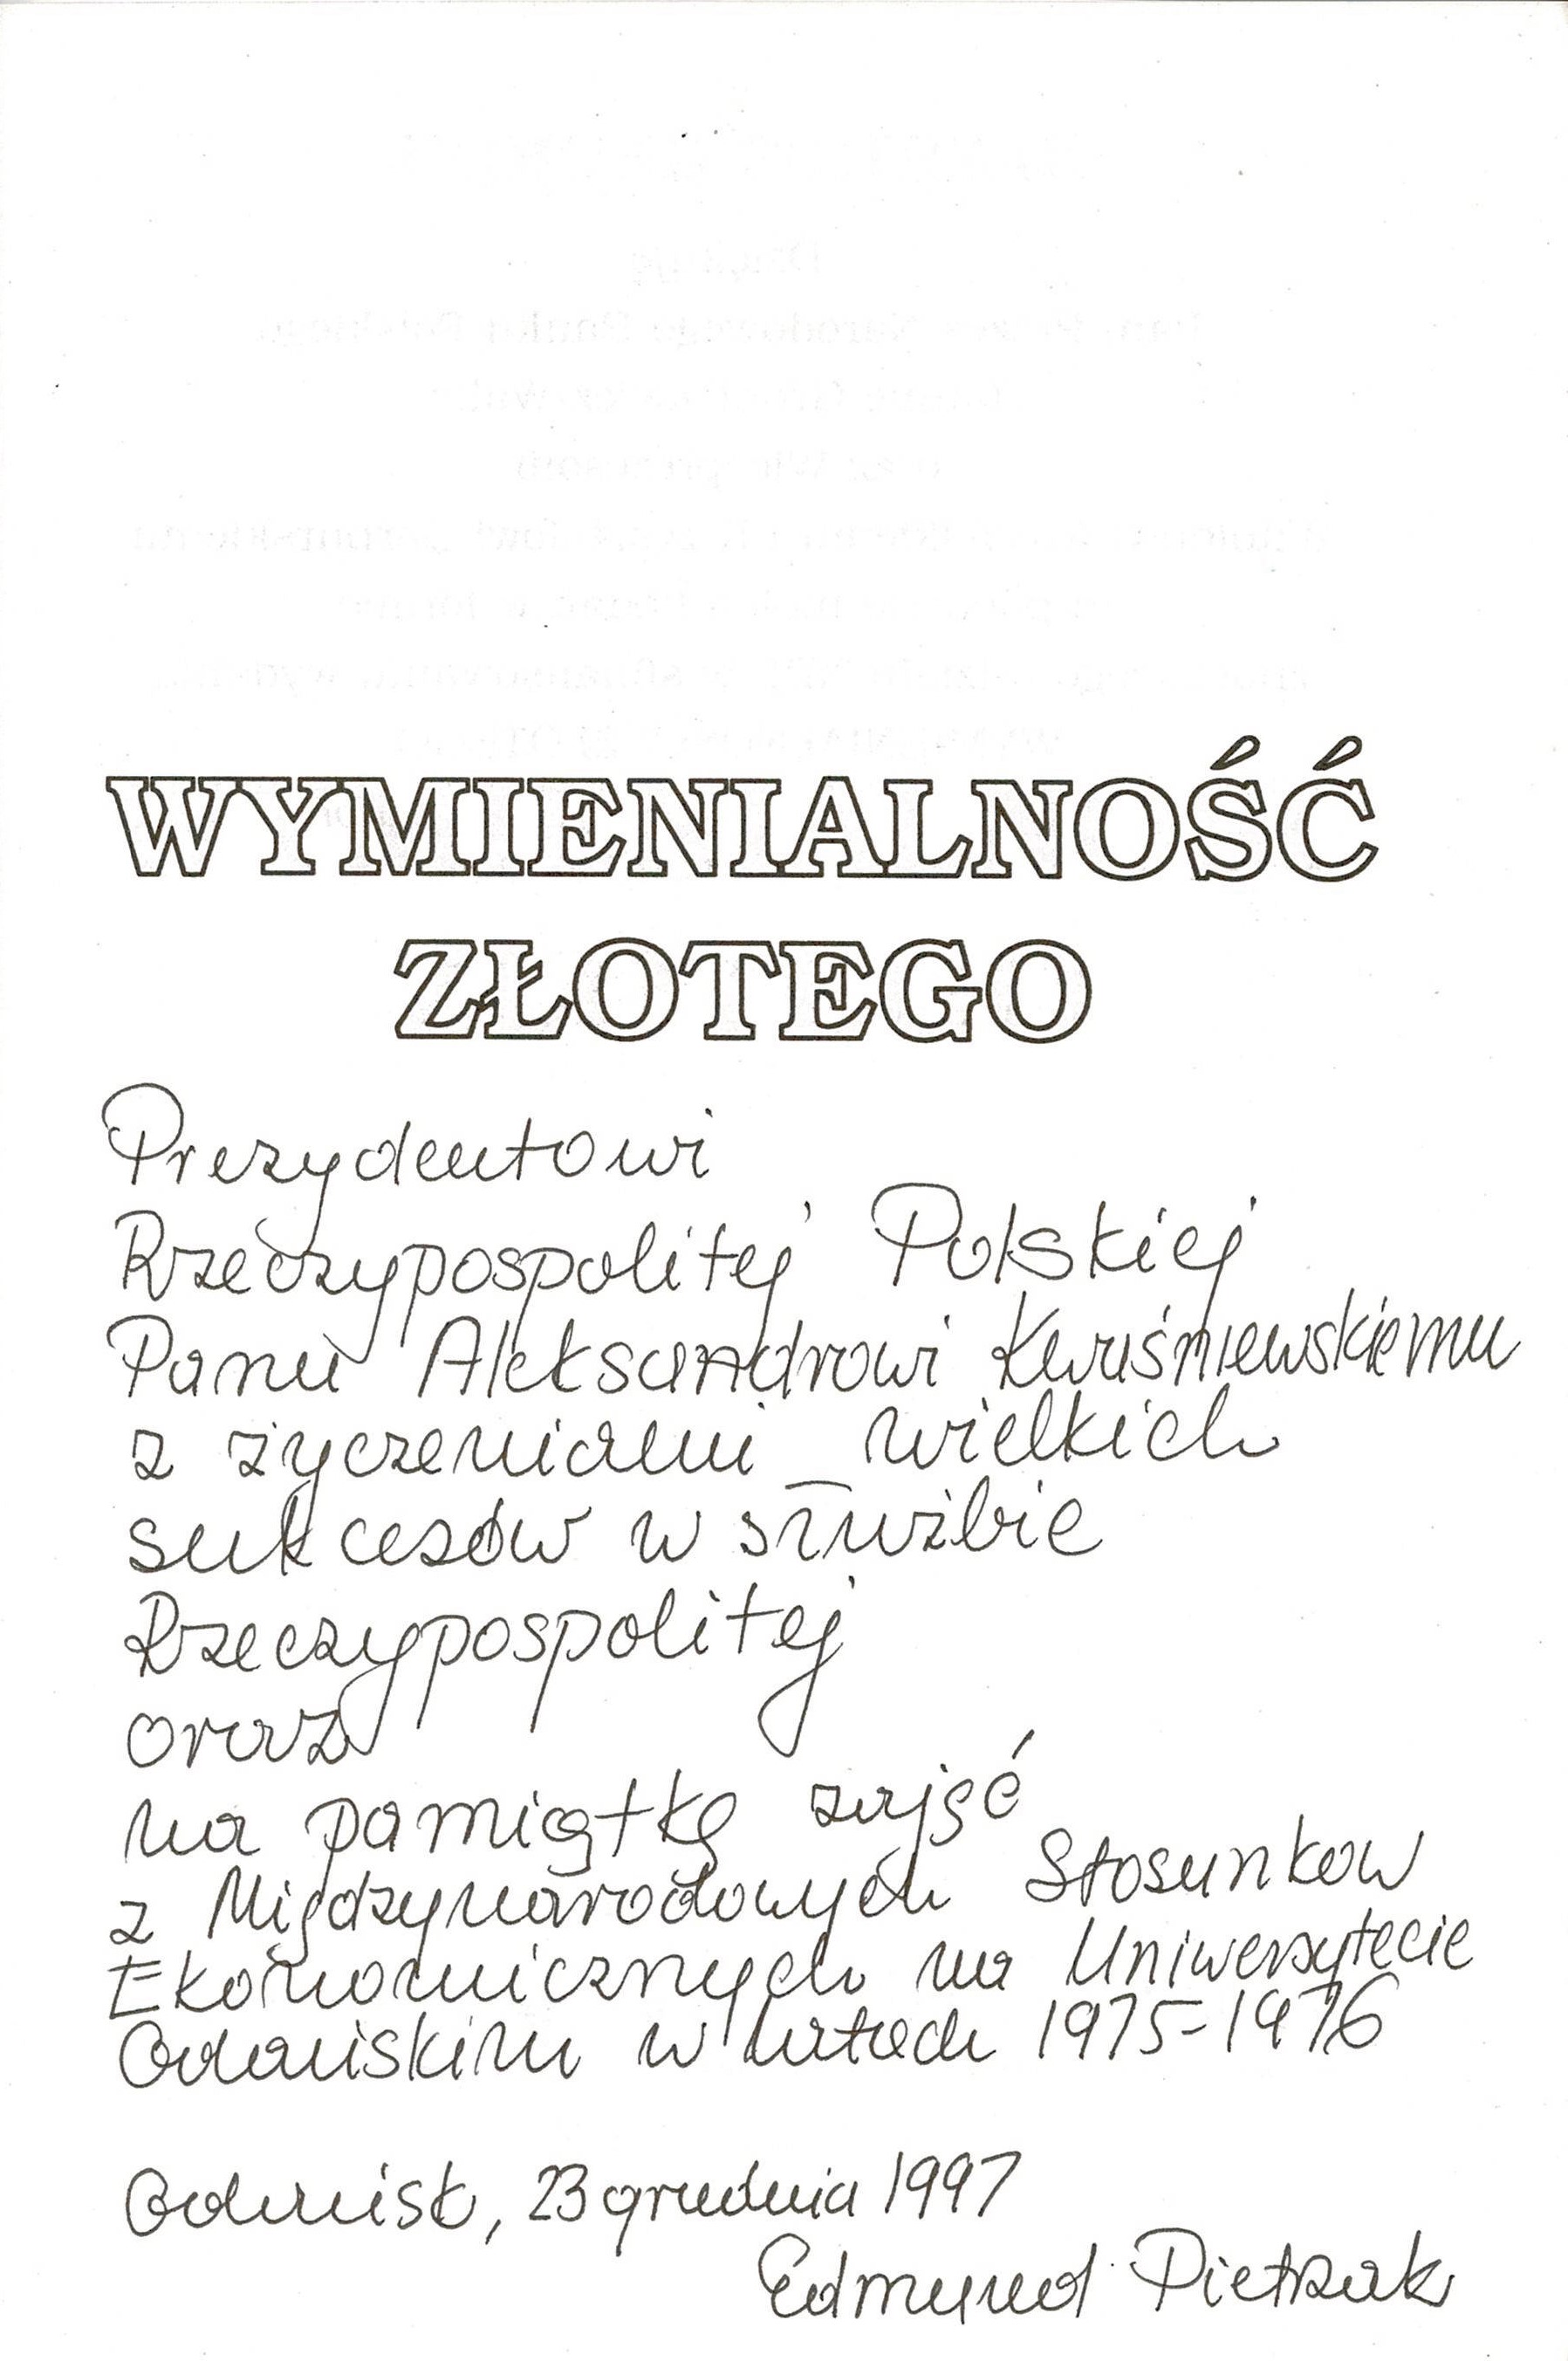 WYMIENIALNOŚĆ
ZŁOTEGO
Prezydentowi
Rzeczypospolitej Polskiej
Panu Aleksandrowi Kwaśniewskiemu
z życzeniami wielkich
sukcesów w służbie
Rzeczypospolitej
oraz
na pamiątkę zajęć
z Międzynarodowych Stosunków
Ekonomicznych na Uniwersytecie
Gdańskim w latach 1975-1976
Gdańsk, 23 grudnia 1997
Edmund Pietrzak